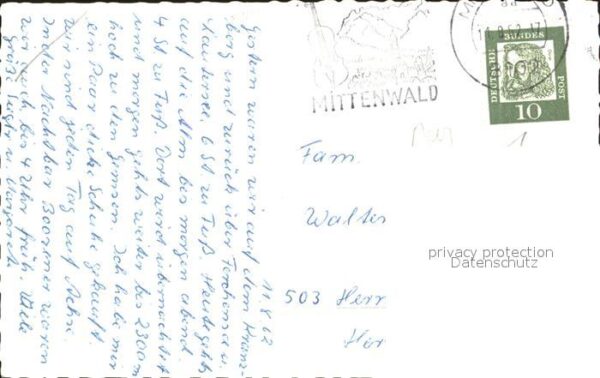 11.8.62
Gestern waren wir auf dem Kranz-
berg und zurück über Ferchensee u.
Lautersee. 6 St zu Fuß. Heute gehts
auf die Alm bei morgen abend.
4 St zu Fuß. Dort wird übernachtet
und morgen gehts weiter bis 2300 m
hoch zu den Gemsen. Ich habe mir
ein Paar dicke Schuhe gekauft.
Wir sind jeden Tag auf Achse.
In der Nachtbar Boazner waren
wir auch bis 4 Uhr früh. Viele
Grüße
MITTENWALD
DEUTSCHE BUNDESPOST
10
1
Fam.
Walter
503 Herr
Her
privacy protection
Datenschutz